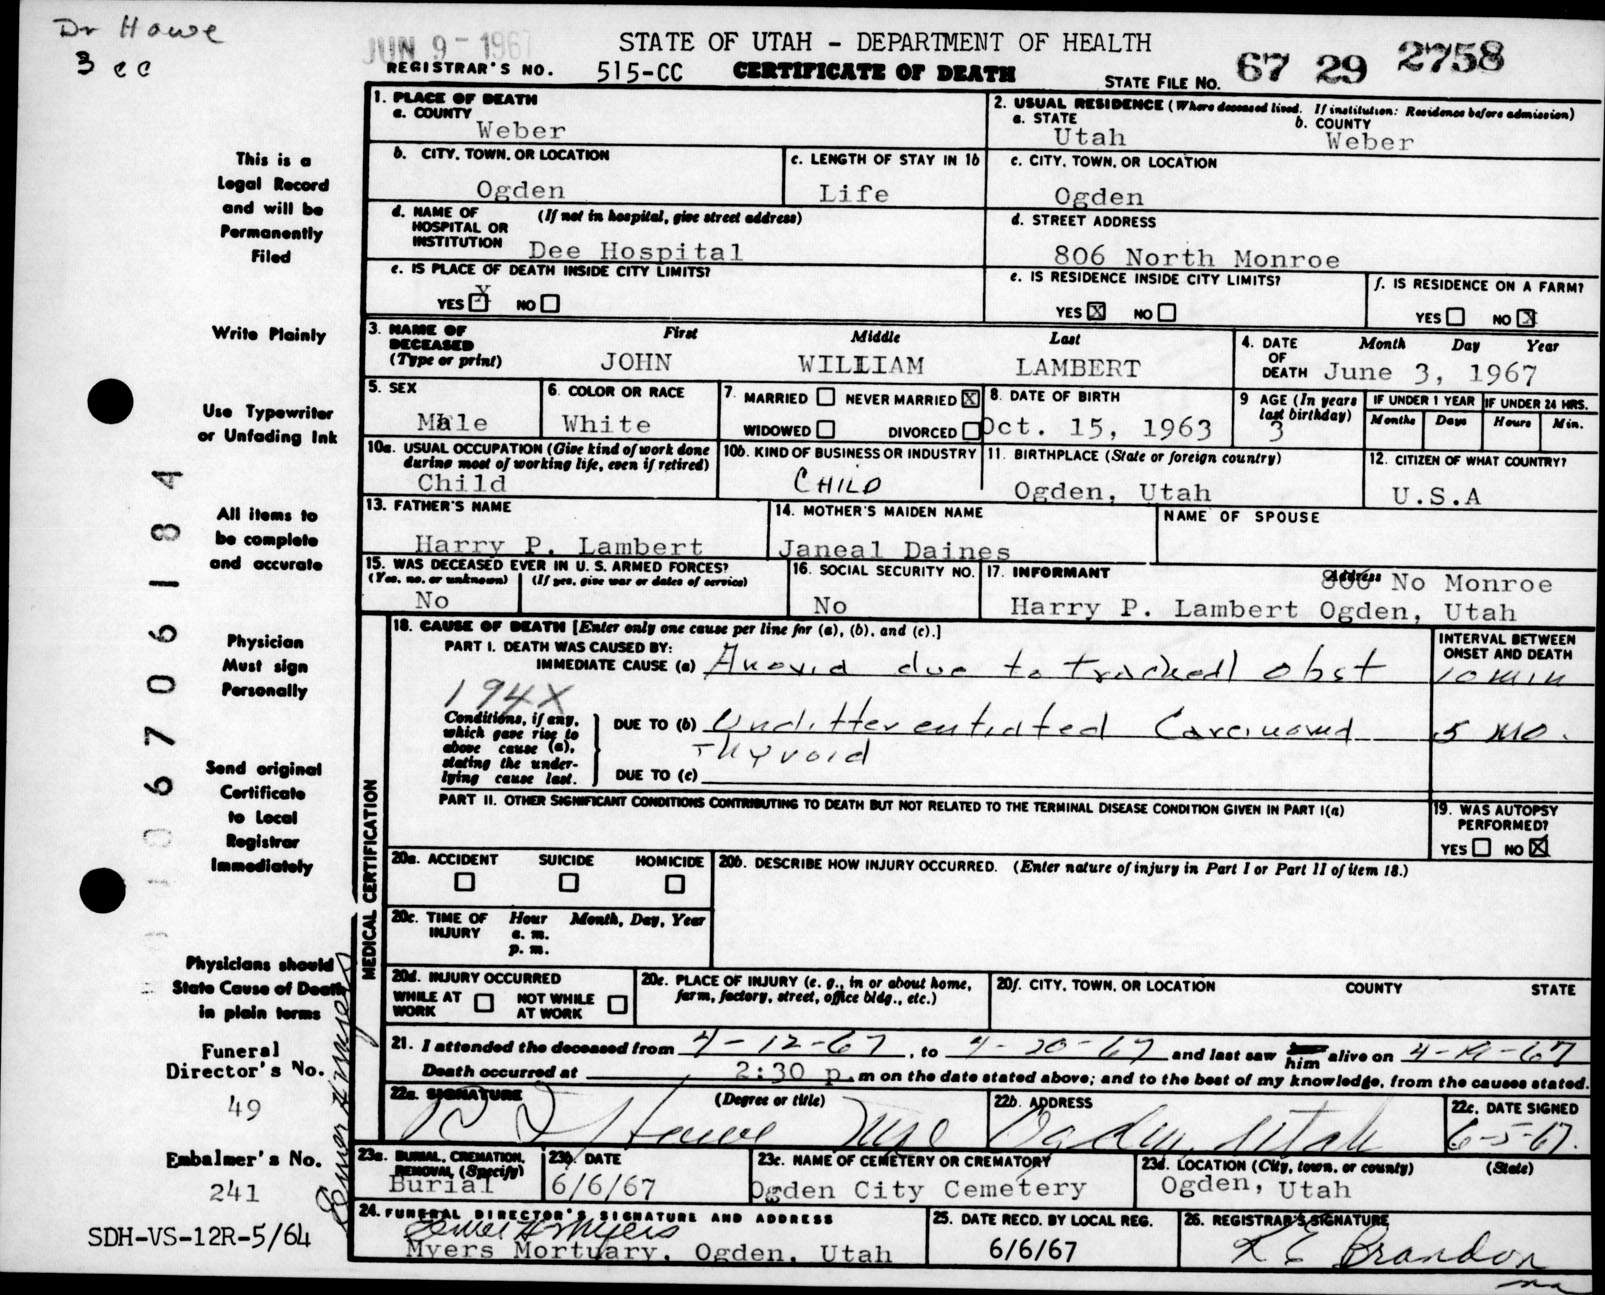 Dr Howe
3 cc
JUN 9 - 1967
STATE OF UTAH - DEPARTMENT OF HEALTH
REGISTRAR'S NO. 515-CC CERTIFICATE OF DEATH STATE FILE NO. 67 29 2758
This is a
Legal Record
and will be
Permanently
Filed
Write Plainly
Use Typewriter
or Unfading Ink
All items to
be complete
and accurate
Physician
Must sign
Personally
Send original
Certificate
to Local
Registrar
Immediately
Physicians should
State Cause of Death
in plain terms
Funeral
Director's No.
49
Embalmer's No.
241
SDH-VS-12R-5/64
06706184
1. PLACE OF DEATH
a. COUNTY
Weber
2. USUAL RESIDENCE (Where deceased lived. If institution: Residence before admission)
a. STATE b. COUNTY
Utah Weber
b. CITY, TOWN, OR LOCATION
Ogden
c. LENGTH OF STAY IN 1b
Life
c. CITY, TOWN, OR LOCATION
Ogden
d. NAME OF (If not in hospital, give street address)
HOSPITAL OR
INSTITUTION Dee Hospital
d. STREET ADDRESS
806 North Monroe
e. IS PLACE OF DEATH INSIDE CITY LIMITS?
YES X NO
e. IS RESIDENCE INSIDE CITY LIMITS?
YES X NO
f. IS RESIDENCE ON A FARM?
YES NO X
3. NAME OF First Middle Last
DECEASED
(Type or print) JOHN WILLIAM LAMBERT
4. DATE Month Day Year
OF
DEATH June 3, 1967
5. SEX
Male
6. COLOR OR RACE
White
7. MARRIED NEVER MARRIED X
WIDOWED DIVORCED
8. DATE OF BIRTH
Oct. 15, 1963
9 AGE (In years
last birthday)
3
IF UNDER 1 YEAR
Months Days
IF UNDER 24 HRS.
Hours Min.
10a. USUAL OCCUPATION (Give kind of work done
during most of working life, even if retired)
Child
10b. KIND OF BUSINESS OR INDUSTRY
CHILD
11. BIRTHPLACE (State or foreign country)
Ogden, Utah
12. CITIZEN OF WHAT COUNTRY?
U.S.A
13. FATHER'S NAME
Harry P. Lambert
14. MOTHER'S MAIDEN NAME
Janeal Daines
NAME OF SPOUSE
15. WAS DECEASED EVER IN U. S. ARMED FORCES?
(Yes, no, or unknown) (If yes, give war or dates of service)
No
16. SOCIAL SECURITY NO.
No
17. INFORMANT Address 806 No Monroe
Harry P. Lambert Ogden, Utah
MEDICAL CERTIFICATION
18. CAUSE OF DEATH [Enter only one cause per line for (a), (b), and (c).]
PART I. DEATH WAS CAUSED BY:
IMMEDIATE CAUSE (a) Anoxia due to tracheal obst
INTERVAL BETWEEN
ONSET AND DEATH
10 min
194X
Conditions, if any,
which gave rise to
above cause (a),
stating the under-
lying cause last.
DUE TO (b) Undifferentiated Carcinoma 5 mo.
Thyroid
DUE TO (c)
PART II. OTHER SIGNIFICANT CONDITIONS CONTRIBUTING TO DEATH BUT NOT RELATED TO THE TERMINAL DISEASE CONDITION GIVEN IN PART I(a)
19. WAS AUTOPSY
PERFORMED?
YES NO X
20a. ACCIDENT SUICIDE HOMICIDE
20b. DESCRIBE HOW INJURY OCCURRED. (Enter nature of injury in Part I or Part II of item 18.)
20c. TIME OF Hour Month, Day, Year
INJURY a. m.
p. m.
20d. INJURY OCCURRED
WHILE AT NOT WHILE
WORK AT WORK
20e. PLACE OF INJURY (e. g., in or about home,
farm, factory, street, office bldg., etc.)
20f. CITY, TOWN, OR LOCATION COUNTY STATE
21. I attended the deceased from 4-12-67, to 4-20-67 and last saw him alive on 4-19-67
Death occurred at 2:30 p.m on the date stated above; and to the best of my knowledge, from the causes stated.
22a. SIGNATURE (Degree or title)
Howe
22b. ADDRESS
Ogden, Utah
22c. DATE SIGNED
6-5-67.
23a. BURIAL, CREMATION,
REMOVAL (Specify)
Burial
23b. DATE
6/6/67
23c. NAME OF CEMETERY OR CREMATORY
Ogden City Cemetery
23d. LOCATION (City, town, or county) (State)
Ogden, Utah
24. FUNERAL DIRECTOR'S SIGNATURE AND ADDRESS
Myers
Myers Mortuary, Ogden, Utah
25. DATE RECD. BY LOCAL REG.
6/6/67
26. REGISTRAR'S SIGNATURE
R E Brandon